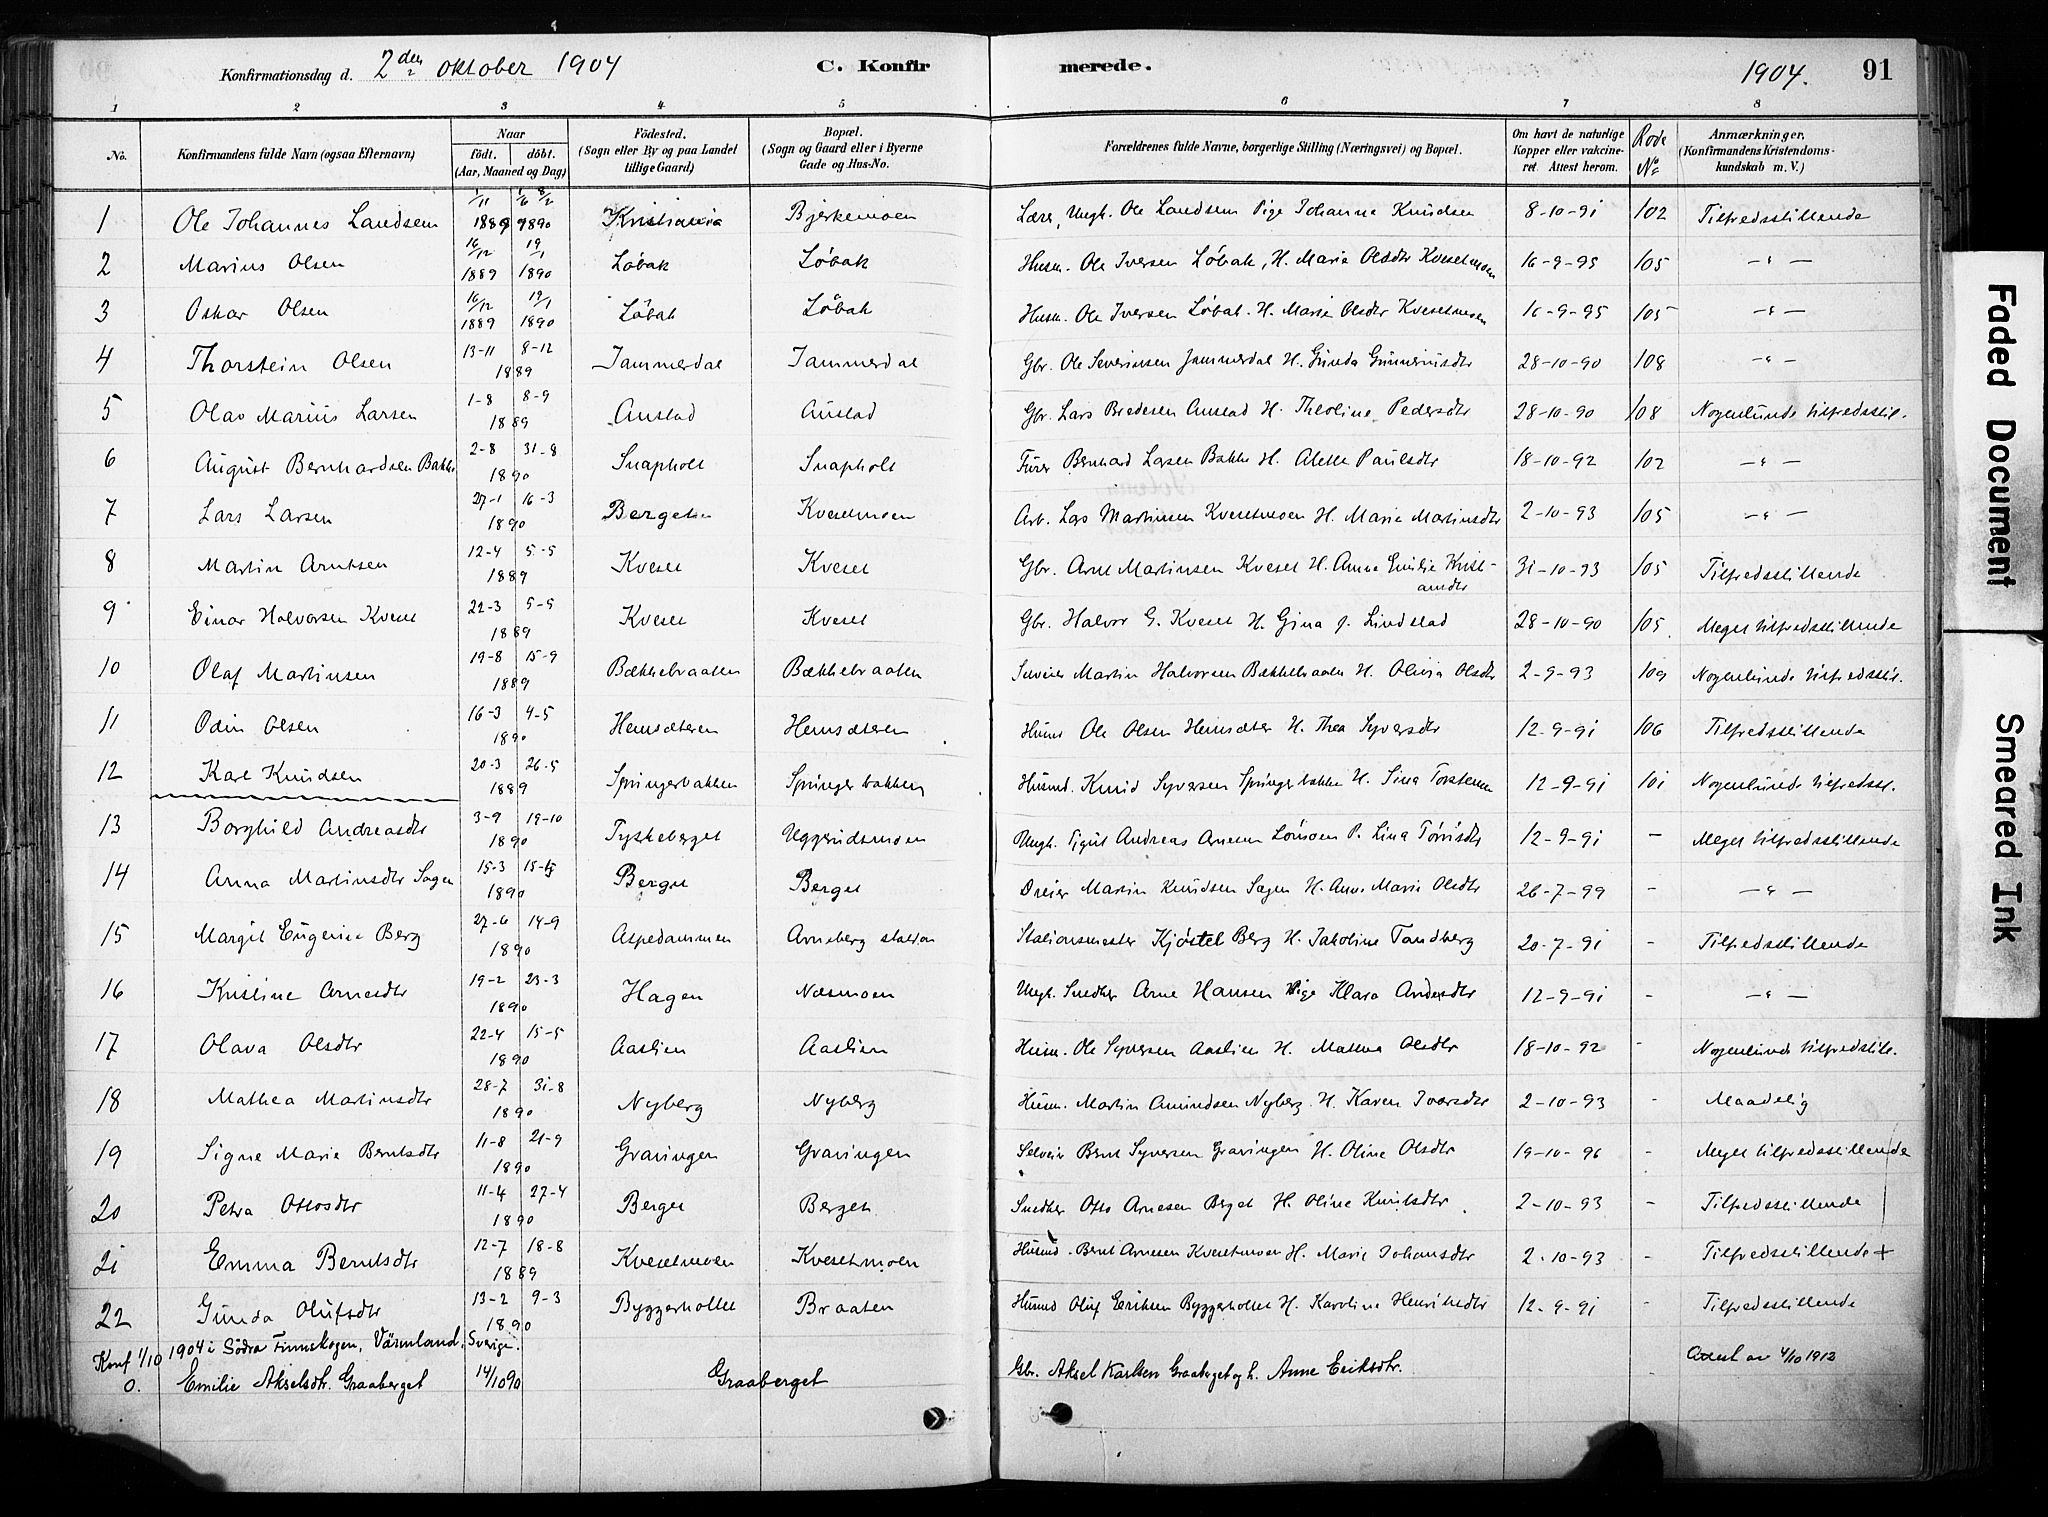 Konfirmationsdag d. 2den oktober 1904 C. Konfirmerede. 1904. 91
1 2 3 4 5 6 7 8
No. Konfirmandens fulde Navn (ogsaa Efternavn) Naar födt. döbt. (Aar, Maaned og Dag) Födested. (Sogn eller By og paa Landet tillige Gaard) Bopæl. (Sogn og Gaard eller i Byerne Gade og Hus-No. Forældrenes fulde Navne, borgerlige Stilling (Næringsvei) og Bopæl. Om havt de naturlige Kopper eller vakcineret. Attest herom. Rode No Anmærkninger, (Konfirmandens Kristendomskundskab m. V.)
1 Ole Johannes Landsem 1/11 1889 1890 Kristiania Bjerkemoen Lærer, Ungk. Ole Landsem Pige Johanna Knudsen 8-10-91 102 Tilfredsstillende
2 Marius Olsen 16/12 1889 19/1 1890 Löbak Löbak Husm. Ole Iversen Löbak, H. Marie Olsdtr Kvesetmoen 16-9-95 105 -"-
3 Oskar Olsen 16/12 1889 19/1 1890 Löbak Löbak Husm. Ole Iversen Löbak. H. Marie Olsdtr Kvesetmoen 16-9-95 105 -"-
4 Thorstein Olsen 13-11 8-12 1889 Jammerdal Jammerdal Gbr. Ole Severinsen Jammerdal H. Gunda Gunneriusdtr 28-10-90 108 -"-
5 Olav Marius Larsen 1-8 8-9 1889 Austad Austad Gbr. Lars Bredesen Austad H. Theoline Pedersdtr 28-10-90 108 Nogenlunde tilfredsstil.
6 August Bernhardsen Bakke 2-8 31-8 1890 Snapholt Snapholt Furer Bernhard Larsen Bakke H. Alette Paulsdtr 18-10-92 102 -"-
7 Lars Larsen 27-1 16-3 1890 Berget Kvesetmoen Arb. Lars Martinsen Kvesetmoen H. Marie Martinsdtr 2-10-93 105 -"-
8 Martin Arntsen 12-4 5-5 1889 Kveset Kveset Gbr. Arnt Martinsen Kveset H. Anna Emilie Kristiansdtr 31-10-93 105 Tilfredsstillende
9 Einar Halvorsen Kveset 22-3 5-5 1889 Kveset Kveset Gbr. Halvor G. Kveset H. Gina J. Lindstad 28-10-90 105 Meget tilfredsstillende
10 Olaf Martinsen 19-8 15-9 1889 Bækkebraaten Bækkebraaten Selveier Martin Halvorsen Bækkebraaten H. Olivia Olsdtr 2-9-93 109 Nogenlunde tilfredsstil.
11 Odin Olsen 16-3 4-5 1890 Hemsæteren Hemsæteren Husmd Ole Olsen Hemsæter H. Thea Syversdtr 12-9-91 106 Tilfredsstillende
12 Karl Knudsen 20-3 26-5 1889 Springerbakken Springerbakken Husmd. Knud Syversen Springerbakken H. Sina Torstensen 12-9-91 101 Nogenlunde tilfredsst.
13 Borghild Andreasdtr 3-9 19-10 1890 Tyskeberget Uggerudsmoen Ungk. Andreas Arnesen P. Lina 12-9-91 - Meget tilfredsstillende
14 Anna Martinsdtr Sagen 15-3 15-5 1890 Berget Berget Dreier Martin Knudsen Sagen H. Anne Marie Olsdtr 26-7-99 - -"-
15 Margit Eugenie Berg 27-6 14-9 1890 Aspedammen Arneberg station Stationsmester Kjöstel Berg H. Jakoline Tandberg 20-7-91 - Tilfredsstillende
16 Kristine Arnesdtr 19-2 23-3 1890 Hagen Næsmoen Ungk. Snedker Arne Hansen Pige Klara Andersdtr 12-9-91 - -"-
17 Olava Olsdtr 22-4 15-5 1890 Aaslien Aaslien Husm. Ole Syversen Aaslien H. Mathea Olsdtr 18-10-92 - Nogenlunde tilfredsstil.
18 Mathea Martinsdtr 28-7 31-8 1890 Nyberg Nyberg Husm. Martin Amundsen Nyberg. H. Karen Ivarsdtr 2-10-93 - Maadelig
19 Signe Marie Berntsdtr 11-8 21-9 1890 Gravingen Gravingen Selveier Bernt Syversen Gravingen H. Oline Olsdtr 19-10-96 - Meget tilfredsstillende
20 Petra Ottosdtr 11-4 27-4 1890 Berget Berget Snedker Otto Arnesen Berget H. Oline Knutsdtr 2-10-93 - Tilfredsstillende
21 Emma Berntsdtr 12-7 18-8 1889 Kvesetmoen Kvesetmoen Husmd. Bernt Arnesen Kvesetmoen H. Marie Johansdtr 2-10-93 - Tilfredsstillende +
22 Gunda Olufsdtr 13-2 9-3 1890 Byggerholtet Braaten Husmd Oluf Eriksen Byggerholtet H. Karoline Henriksdtr 12-9-91 - Tilfredsstillende
Konf 1/10 1904 i Södra Finnskogen, Värmland, Sverige. Attest av 4/10 1912
0. Emilie Akselsdtr. Graaberget 14/10 90 Graaberget Gbr. Aksel Karlsen Graaberget og h. Anne Eriksdtr.
Faded Document
Smeared Ink